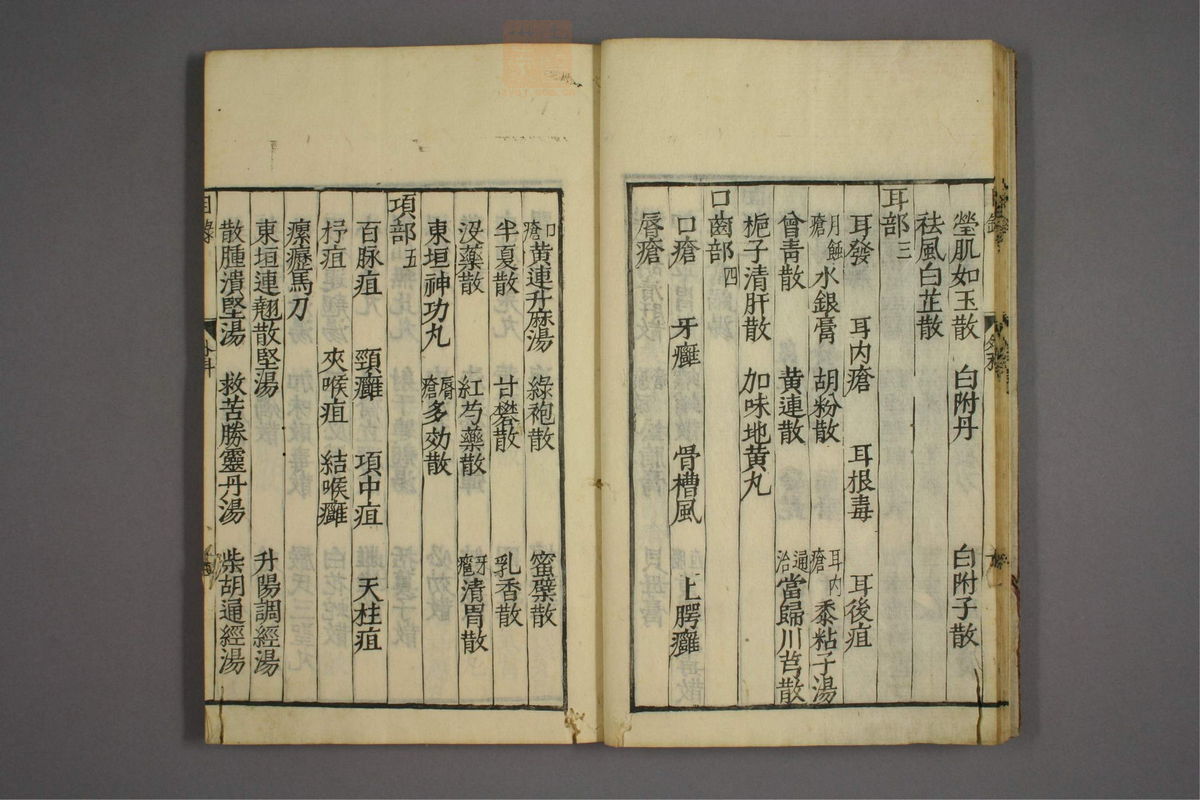 瑩肌如玉散 白附丹 白附子散
祛風白芷散
耳部三
耳發 耳內瘡 耳根毒 耳後疽
月蝕瘡水銀膏 胡粉散 耳內瘡黍粘子湯
曾青散 黃連散 通治當歸川芎散
梔子清肝散 加味地黃丸
口齒部四
口瘡 牙癰 骨槽風 上腭癰
唇瘡
口瘡黃連升麻湯 綠袍散 蜜蘗散
半夏散 甘礬散 乳香散
沒藥散 紅芍藥散 牙癰清胃散
東垣神功丸 唇瘡多効散
項部五
百脉疽 頸癰 項中疽 天柱疽
杼疽 夾喉疽 結喉癰
瘰癧馬刀
東垣連翹散堅湯 升陽調經湯
散腫潰堅湯 救苦勝靈丹湯 柴胡通經湯
目錄 外科